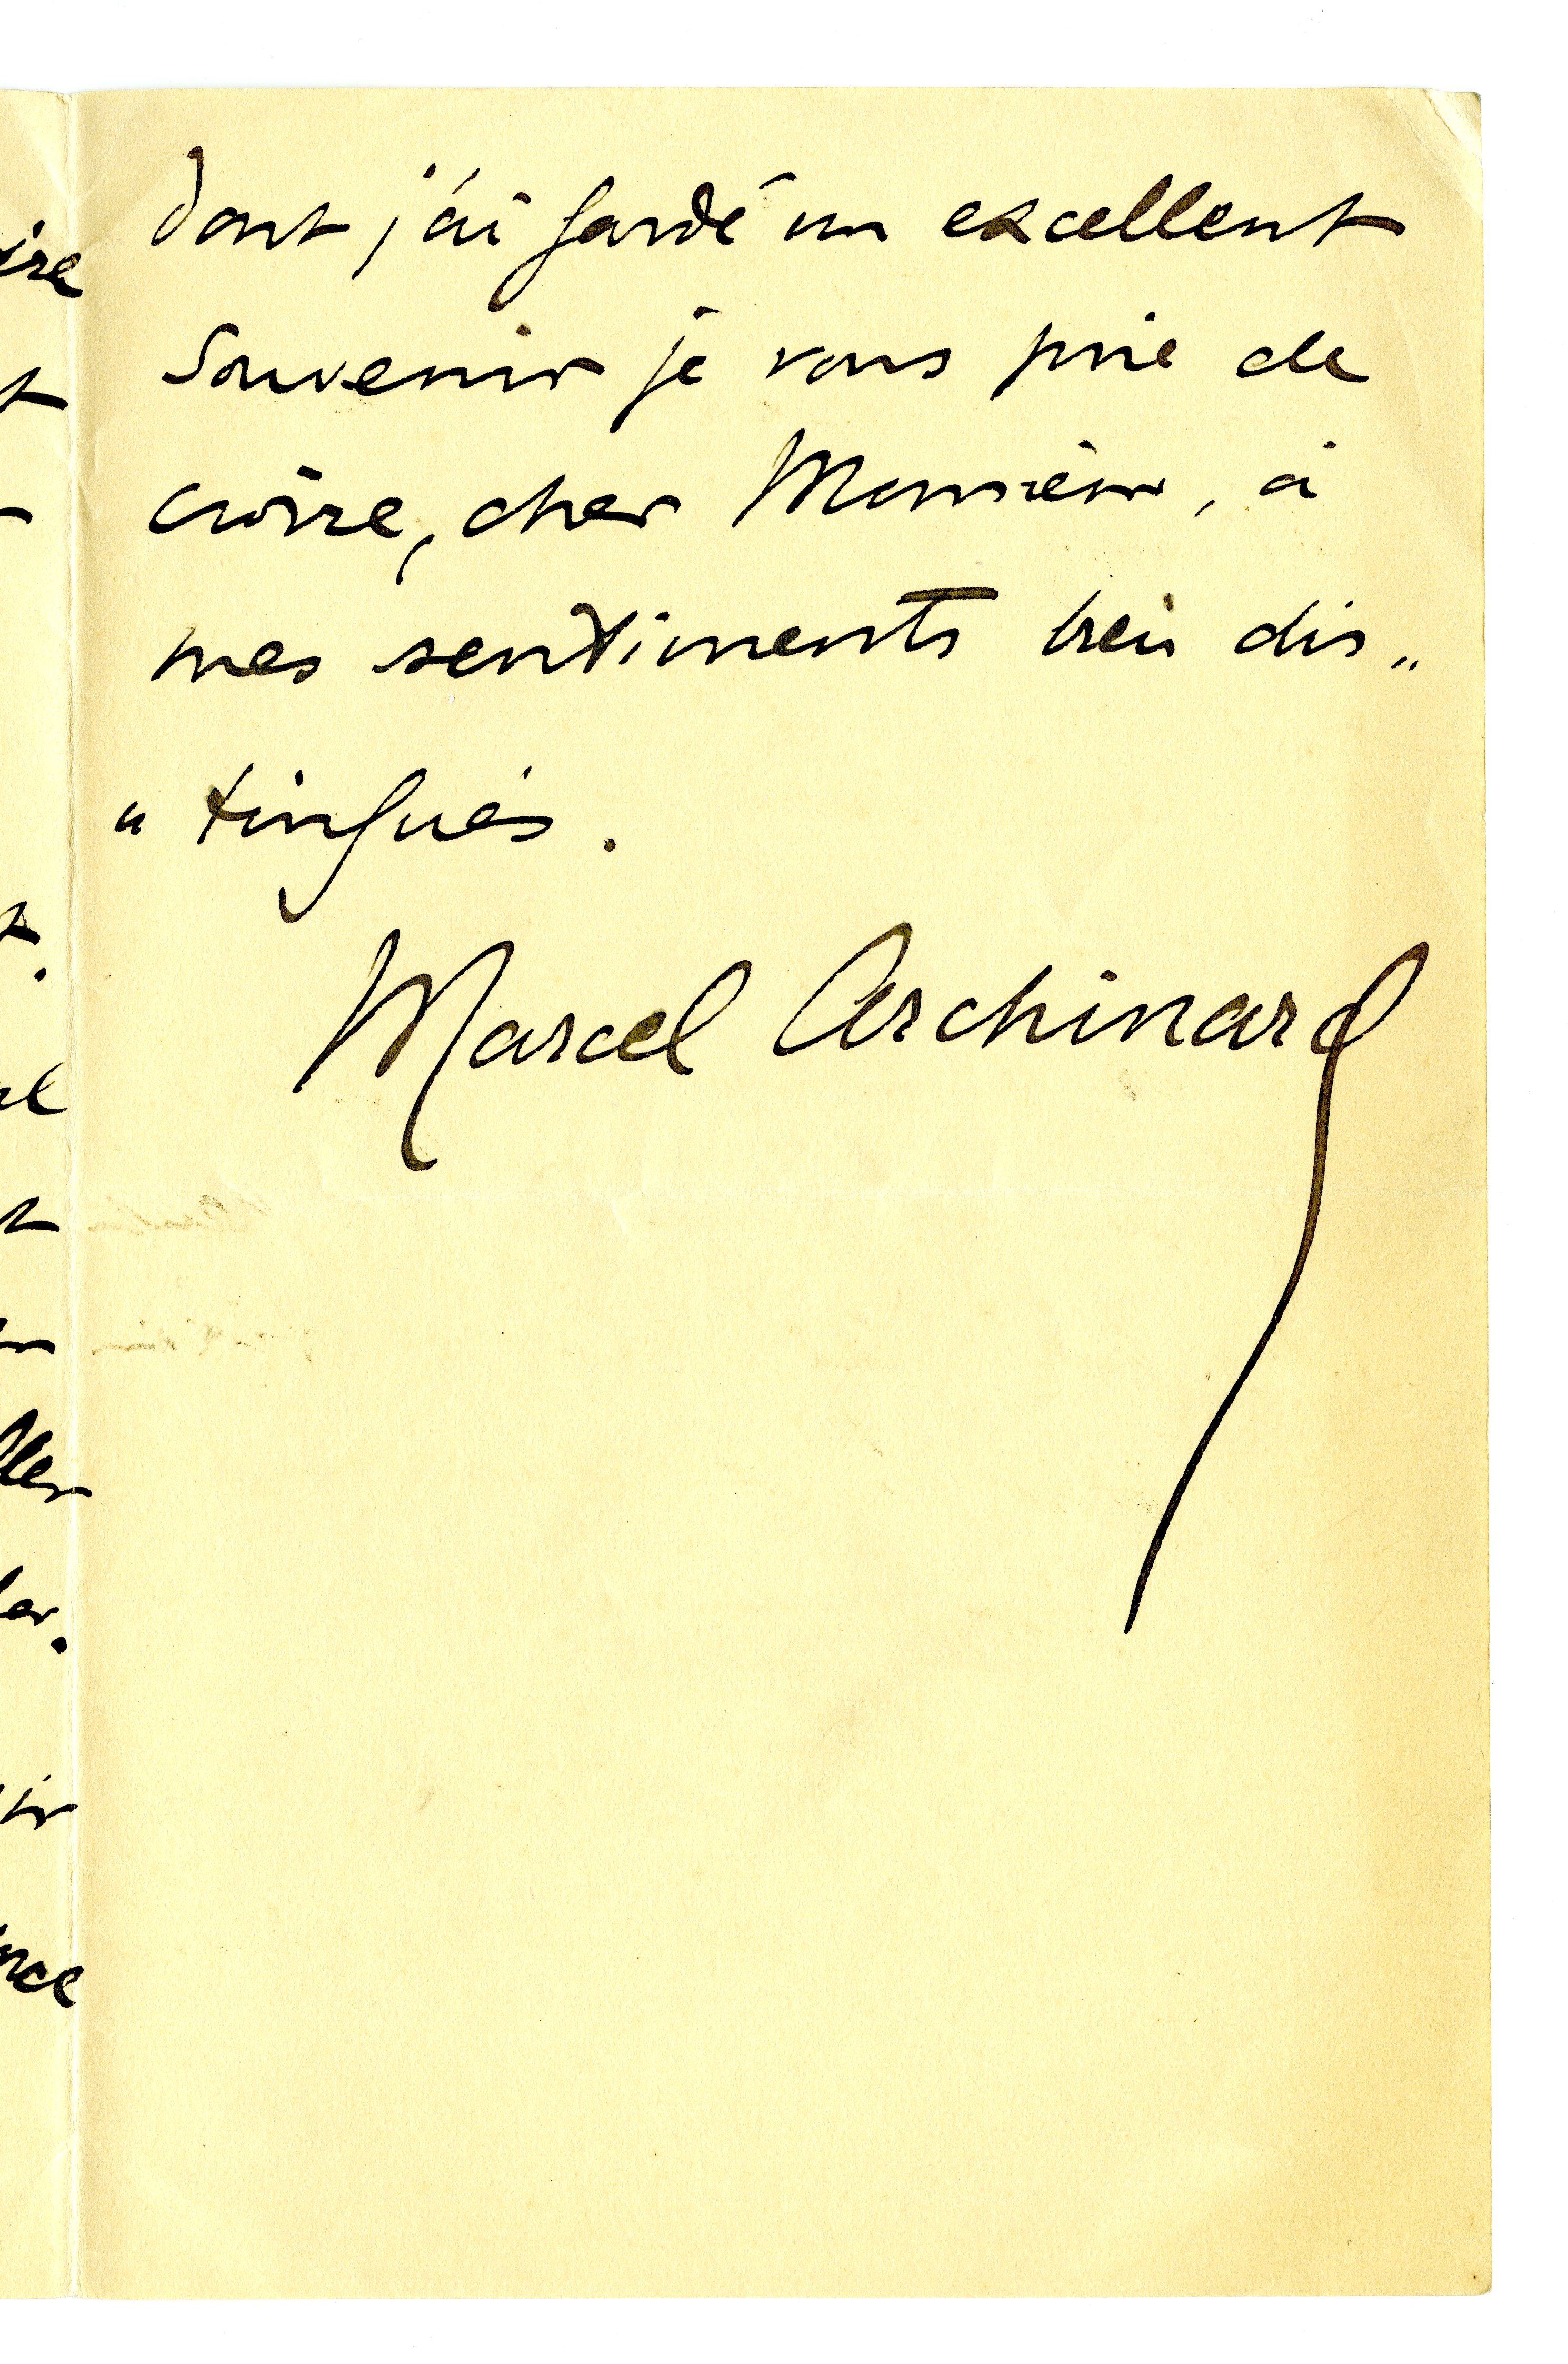 dont j'ai gardé un excellent
souvenir je vous prie de
croire, cher Monsieur, à
mes sentiments bien dis„
„tingués.
Marcel Archinard